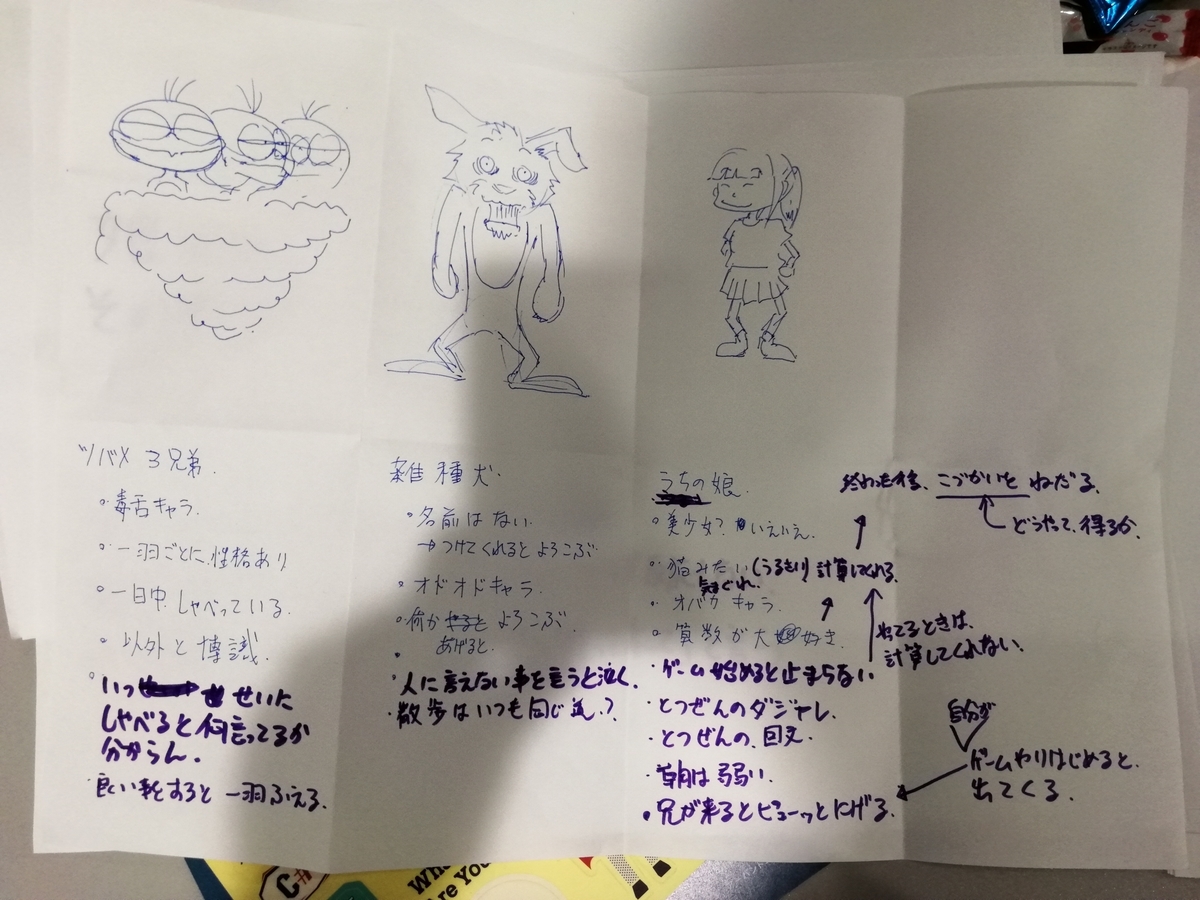 ツバメ 3兄弟.
・毒舌キャラ.
・一羽ごとに.性格あり
・一日中.しゃべっている.
・以外と博識.
・いっせいに
しゃべると何言ってるか
分からん.
・良い事をすると一羽ふえる.
雑種犬.
・名前はない.
→つけてくれるとよろこぶ.
・オドオドキャラ.
・何かあげると.よろこぶ.
・人に言えない事を言うと泣く.
・散歩はいつも同じ道.?
うちの娘.
・美少女?いえいえ.
・猫みたい(うるさい)計算してくれる.
気まぐれ.
・オバカキャラ.
・算数が大好き.
・ゲーム始めると止まらない
・とつぜんのダジャレ.
・とつぜんの.回文.
・朝は弱い.
・兄が来るとピューッとにげる.
終わった後、こづかいをねだる.
どうやって.得るか.
出てるときは.
計算してくれない.
自分が
ゲームやりはじめると.
出てくる.
C#
Wh
re You